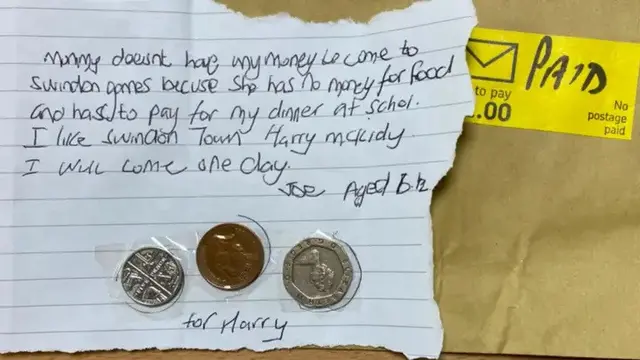 Mommy doesnt have any money to come to
Swindon games becuse she has no money for food
and has to pay for my dinner at schol.
I like swindon Town Harry mckidy.
I will come one day.
Joe Aged 6½
for Harry
PAID
to pay
.00
No
postage
paid